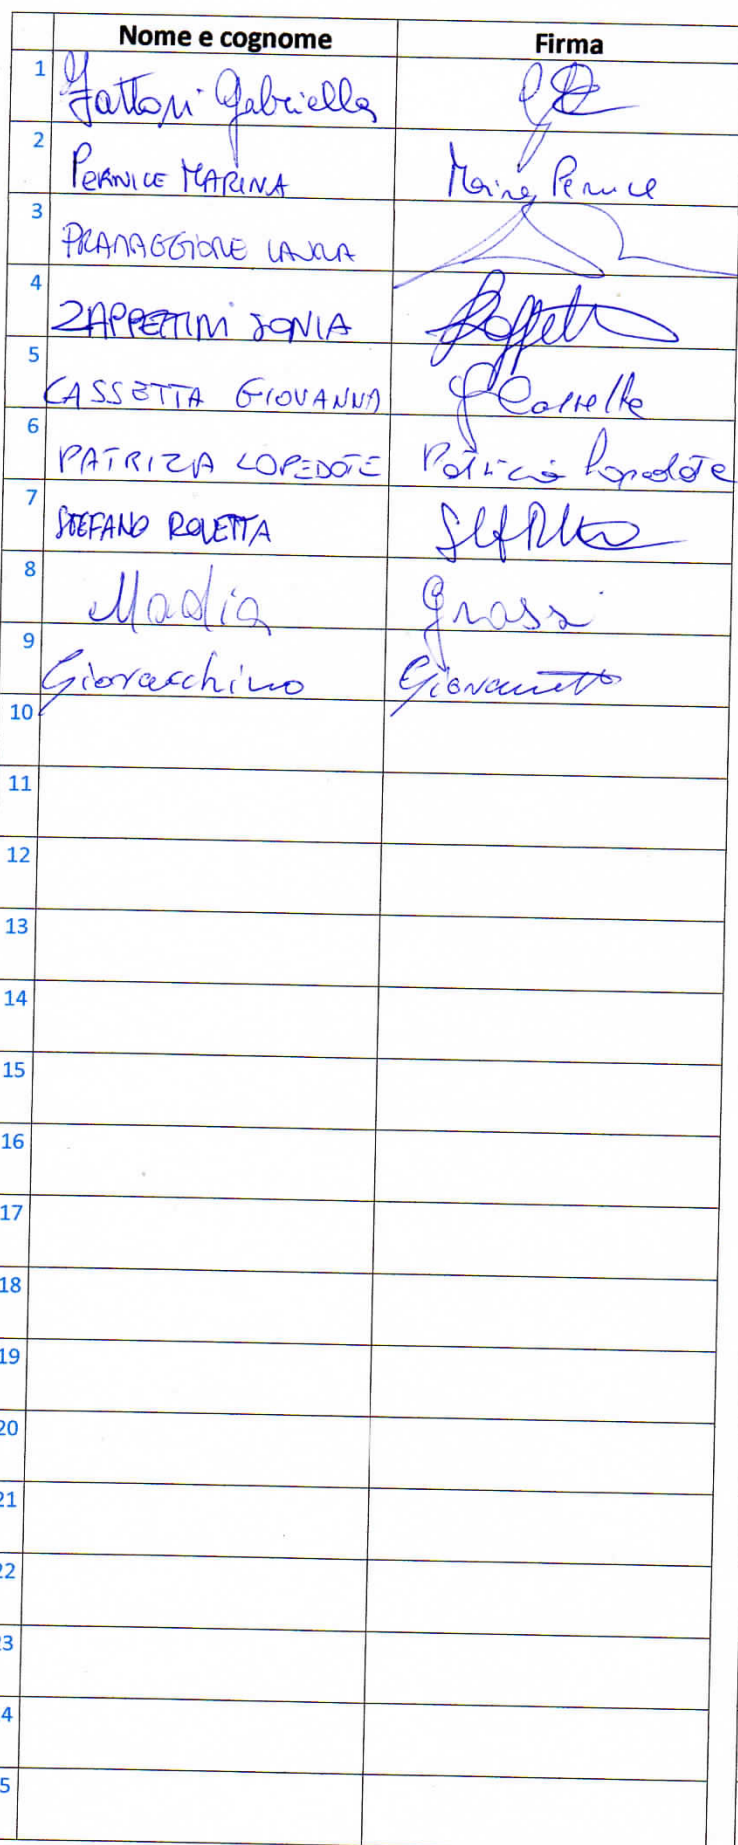 Nome e cognome Firma
1 Fattori Gabriella
2 PERNICE MARINA Marina Pernice
3 PRAMAGGIORE LAURA
4 ZAPPETTINI SONIA
5 CASSETTA GIOVANNA G Cassetta
6 PATRIZIA LOPEDOTE Patrizia Lopedote
7 STEFANO ROLETTA
8 Madia Grassi
9 Giovacchino Giovannetti
10
11
12
13
14
15
16
17
18
19
20
21
22
23
4
5